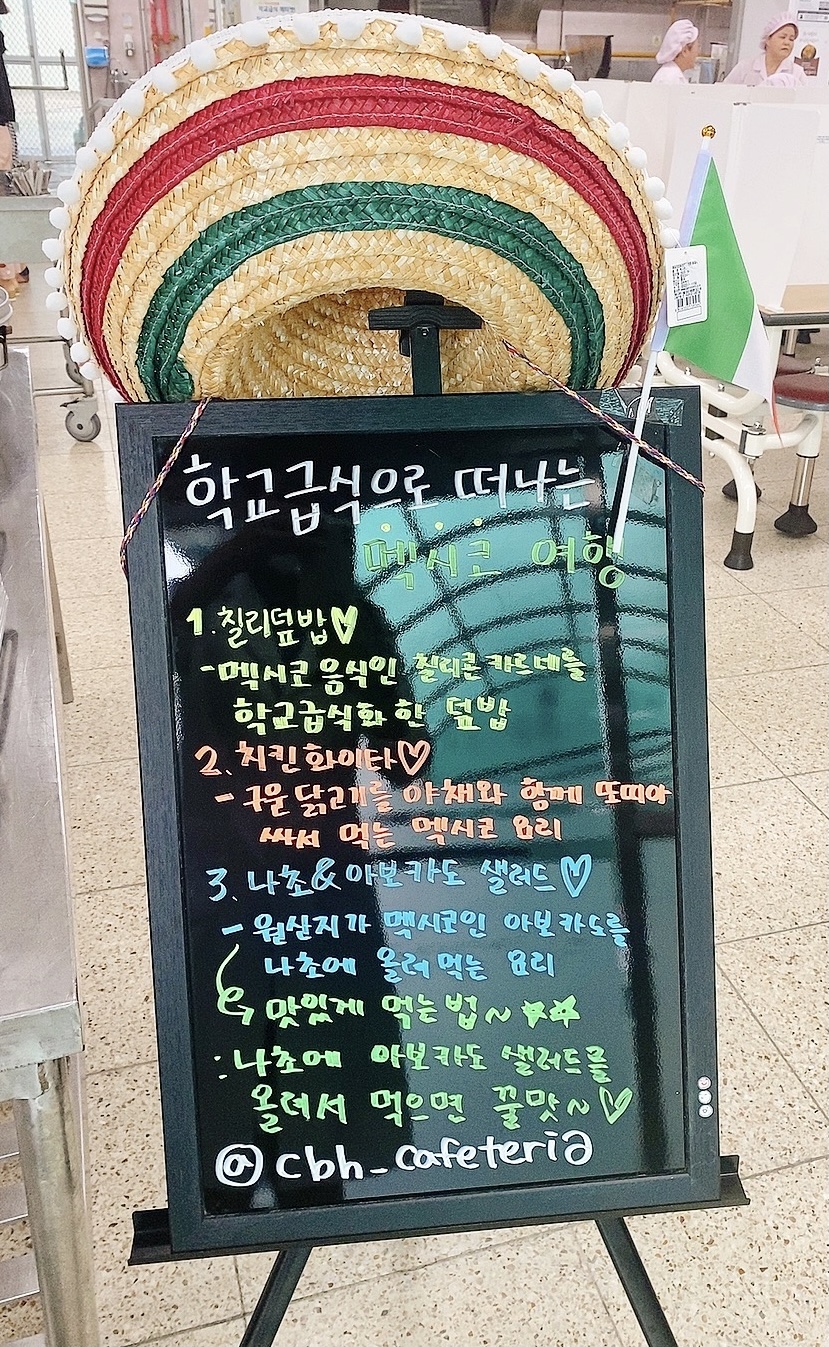 학교급식으로 떠나는
멕시코 여행
1. 칠리덮밥♡
-멕시코 음식인 칠리콘카르네를
학교급식화 한 덮밥
2. 치킨화이타♡
- 구운 닭고기를 야채와 함께 또띠아
싸서 먹는 멕시코 요리
3. 나초&아보카도 샐러드♡
- 원산지가 멕시코인 아보카도를
나초에 올려 먹는 요리
맛있게 먹는법~☆☆
: 나초에 아보카도 샐러드를
올려서 먹으면 꿀맛~♡
@cbh_cafeteria